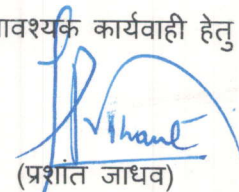 आवश्यक कार्यवाही हेतु
(प्रशांत जाधव)